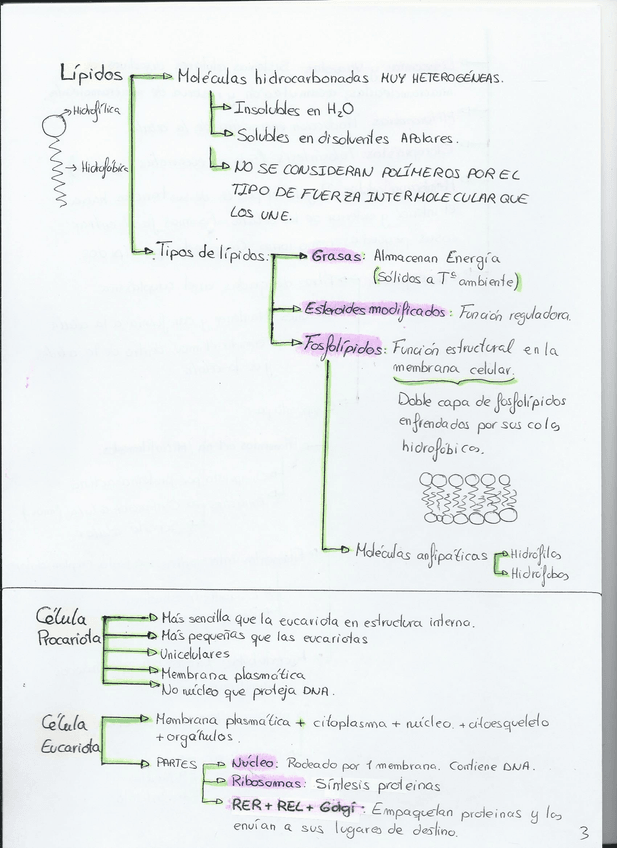 Lípidos
Moléculas hidrocarbonadas MUY HETEROGÉNEAS.
Hidrofílica
Hidrofóbica
Insolubles en H2O
Solubles en disolventes APolares.
NO SE CONSIDERAN POLÍMEROS POR EL
TIPO DE FUERZA INTERMOLECULAR QUE
LOS UNE.
Tipos de lípidos.
Grasas: Almacenan Energía
(Sólidos a Tª ambiente)
Esteroides modificados: Función reguladora.
Fosfolípidos: Función estructural en la
membrana celular.
Doble capa de fosfolípidos
enfrendados por sus colas
hidrofóbicas.
Moléculas anfipáticas
Hidrófilos
Hidrófobos
Célula
Procariota
Más sencilla que la eucariota en estructura interna.
Más pequeñas que las eucariotas
Unicelulares
Membrana plasmática
No núcleo que proteja DNA.
Célula
Eucariota
Membrana plasmática + citoplasma + núcleo. + citoesqueleto
+ orgánulos.
PARTES
Núcleo: Rodeado por 1 membrana. Contiene DNA.
Ribosomas: Síntesis proteinas
RER + REL + Golgi: Empaquetan proteinas y los
envían a sus lugares de destino.
3